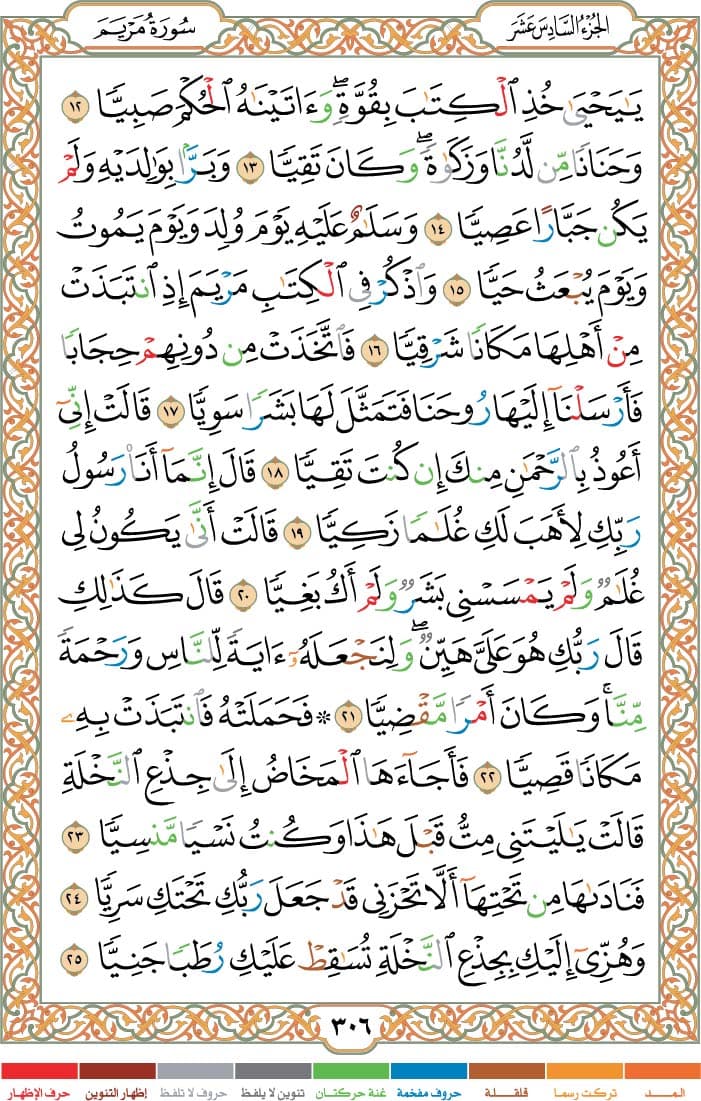 الجزء السادس عشر
سورة مريم
يَٰيَحْيَىٰ خُذِ ٱلْكِتَٰبَ بِقُوَّةٍۖ وَءَاتَيْنَٰهُ ٱلْحُكْمَ صَبِيًّا ١٢
وَحَنَانًا مِّن لَّدُنَّا وَزَكَوٰةًۖ وَكَانَ تَقِيًّا ١٣ وَبَرًّۢا بِوَٰلِدَيْهِ وَلَمْ
يَكُن جَبَّارًا عَصِيًّا ١٤ وَسَلَٰمٌ عَلَيْهِ يَوْمَ وُلِدَ وَيَوْمَ يَمُوتُ
وَيَوْمَ يُبْعَثُ حَيًّا ١٥ وَٱذْكُرْ فِى ٱلْكِتَٰبِ مَرْيَمَ إِذِ ٱنتَبَذَتْ
مِنْ أَهْلِهَا مَكَانًا شَرْقِيًّا ١٦ فَٱتَّخَذَتْ مِن دُونِهِمْ حِجَابًا
فَأَرْسَلْنَآ إِلَيْهَا رُوحَنَا فَتَمَثَّلَ لَهَا بَشَرًا سَوِيًّا ١٧ قَالَتْ إِنِّىٓ
أَعُوذُ بِٱلرَّحْمَٰنِ مِنكَ إِن كُنتَ تَقِيًّا ١٨ قَالَ إِنَّمَآ أَنَا۠ رَسُولُ
رَبِّكِ لِأَهَبَ لَكِ غُلَٰمًا زَكِيًّا ١٩ قَالَتْ أَنَّىٰ يَكُونُ لِى
غُلَٰمٌ وَلَمْ يَمْسَسْنِى بَشَرٌ وَلَمْ أَكُ بَغِيًّا ٢٠ قَالَ كَذَٰلِكِ
قَالَ رَبُّكِ هُوَ عَلَىَّ هَيِّنٌۖ وَلِنَجْعَلَهُۥٓ ءَايَةً لِّلنَّاسِ وَرَحْمَةً
مِّنَّاۚ وَكَانَ أَمْرًا مَّقْضِيًّا ٢١ ۞ فَحَمَلَتْهُ فَٱنتَبَذَتْ بِهِۦ
مَكَانًا قَصِيًّا ٢٢ فَأَجَآءَهَا ٱلْمَخَاضُ إِلَىٰ جِذْعِ ٱلنَّخْلَةِ
قَالَتْ يَٰلَيْتَنِى مِتُّ قَبْلَ هَٰذَا وَكُنتُ نَسْيًا مَّنسِيًّا ٢٣
فَنَادَىٰهَا مِن تَحْتِهَآ أَلَّا تَحْزَنِى قَدْ جَعَلَ رَبُّكِ تَحْتَكِ سَرِيًّا ٢٤
وَهُزِّىٓ إِلَيْكِ بِجِذْعِ ٱلنَّخْلَةِ تُسَٰقِطْ عَلَيْكِ رُطَبًا جَنِيًّا ٢٥
٣٠٦
المـــد تركت رسما قلقـــلة حروف مفخمة غنة حركتان تنوين لا يلفظ حروف لا تلفظ إظهار التنوين حرف الإظهار